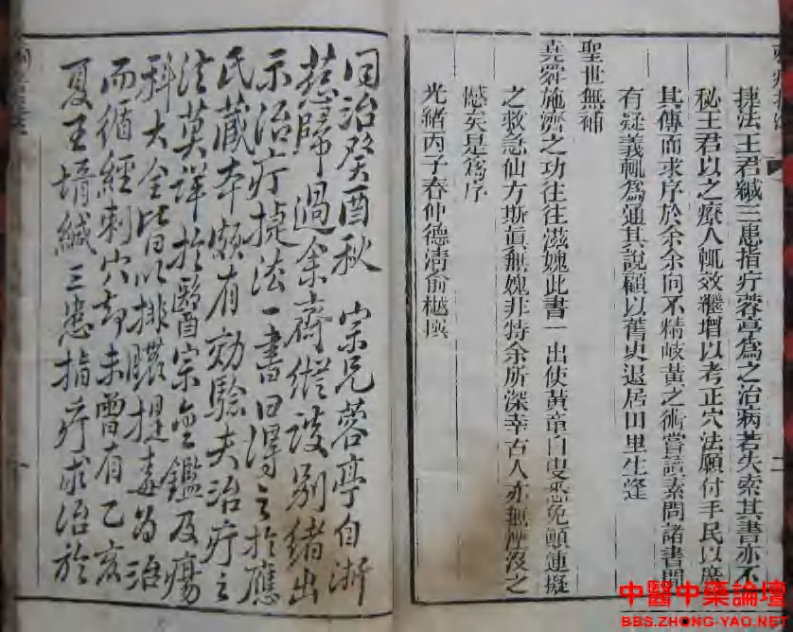 捷法王君緘三患指疔蓉亭為之治病若失索其書亦不
秘王君以之療人輒效繼增以考正穴法願付手民以廣
其傳而求序於余余向不精岐黃之術嘗讀素問諸書間
有疑義輒為通其說顧以舊史退居田里生逢
聖世無補
堯舜施濟之功往往滋媿此書一出使黃童白叟悉免顛連擬
之救急仙方斯真無媿非特余所深幸古人亦無湮沒之
憾矣是為序
光緒丙子春仲德清俞樾撰
同治癸酉秋 宗兄蓉亭自浙
憖歸過余齋縱談別緒出
示治疔捷法一書曰得之於應
氏藏本頗有効驗夫治疔之
法莫詳於醫宗金鑑及瘍
科大全皆以排膿提毒為治
而循經刺穴却未曾有乙亥
夏王壻緘三患指疔求治於
二
中醫中藥論壇
BBS.ZHONG-YAO.NET